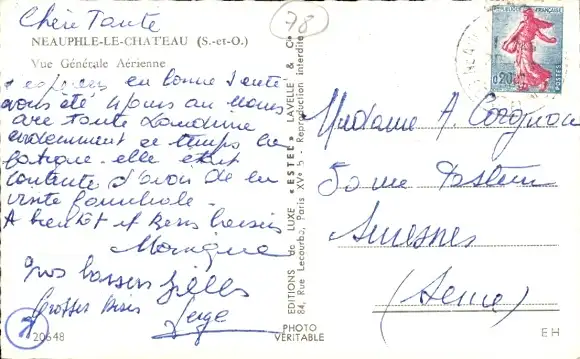 Chère Tante
NEAUPHLE-LE-CHATEAU (S.-et-O.)
Vue Générale Aérienne
espérons en bonne santé
avons été 4 jours au
avec Tante
évidemment ce temps la
fatigue. elle était
contente d'avoir de la
visite familiale.
A bientôt et bons baisers
Monique
gros baisers
Grosses bises Serge
20648
PHOTO
VÉRITABLE
EDITIONS de LUXE "ESTEL" LAVELLE & Cie
84, Rue Lecourbe, Paris XVe - Reproduction interdite
78
RÉPUBLIQUE FRANÇAISE
0,20
POSTES
Madame A
50 rue Pasteur
Suresnes
(Seine)
EH